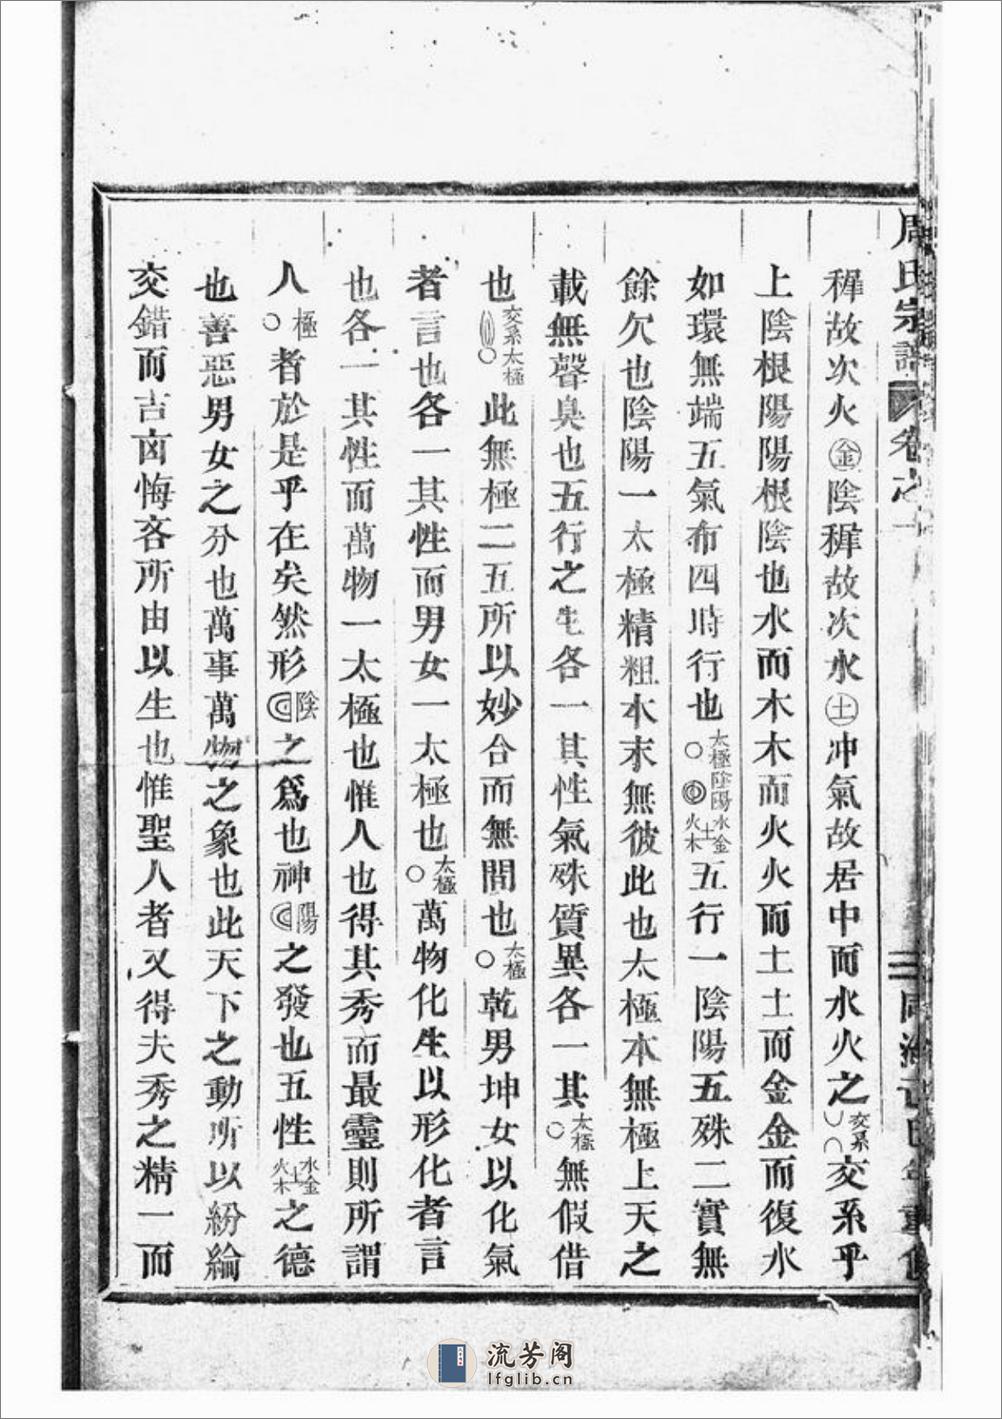 周氏宗譜 卷之
穉故次火㊎陰穉故次水㊏冲氣故居中而水火之交系交系乎
上陰根陽陽根陰也水而木木而火火而土土而金金而復水
如環無端五氣布四時行也太極陰陽水金土火木五行一陰陽五殊二實無
餘欠也陰陽一太極精粗本末無彼此也太極本無極上天之
載無聲臭也五行之生各一其性氣殊質異各一其太極○無假借
也交系太極○此無極二五所以妙合而無間也太極○乾男坤女以化氣
者言也各一其性而男女一太極也太極○萬物化生以形化者言
也各一其性而萬物一太極也惟人也得其秀而最靈則所謂
人極○者於是乎在矣然形陰之爲也神陽之發也五性水金土火木之德
也善惡男女之分也萬事萬物之象也此天下之動所以紛綸
交錯而吉凶悔吝所由以生也惟聖人者又得夫秀之精一而
流芳阁
lfglib.cn